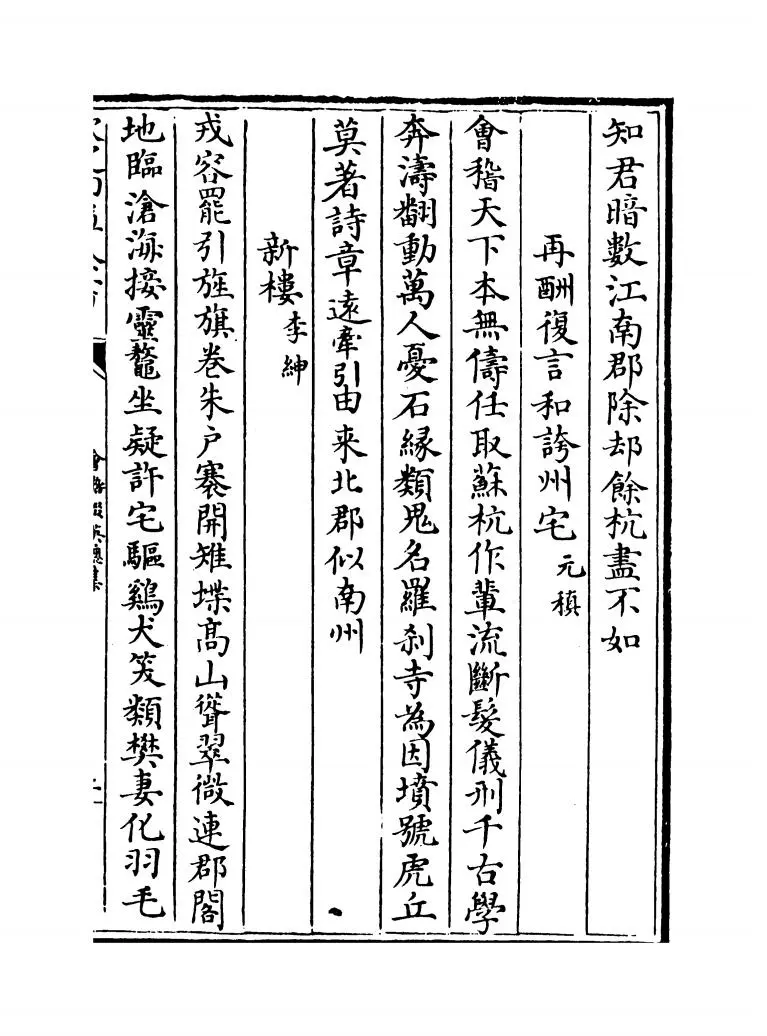 知君暗數江南郡除却餘杭盡不如
再酬復言和誇州宅 元稹
會稽天下本無儔任取蘇杭作輩流斷髮儀刑千古學
奔濤翻動萬人憂石緣類鬼名羅刹寺為因墳號虎丘
莫著詩章遠牽引由來北郡似南州
新樓 李紳
戎容罷引旌旗卷朱戶褰開雉堞高山聳翠微連郡閣
地臨滄海接靈鼇坐疑許宅驅鷄犬笑類樊妻化羽毛
會稽掇英總集